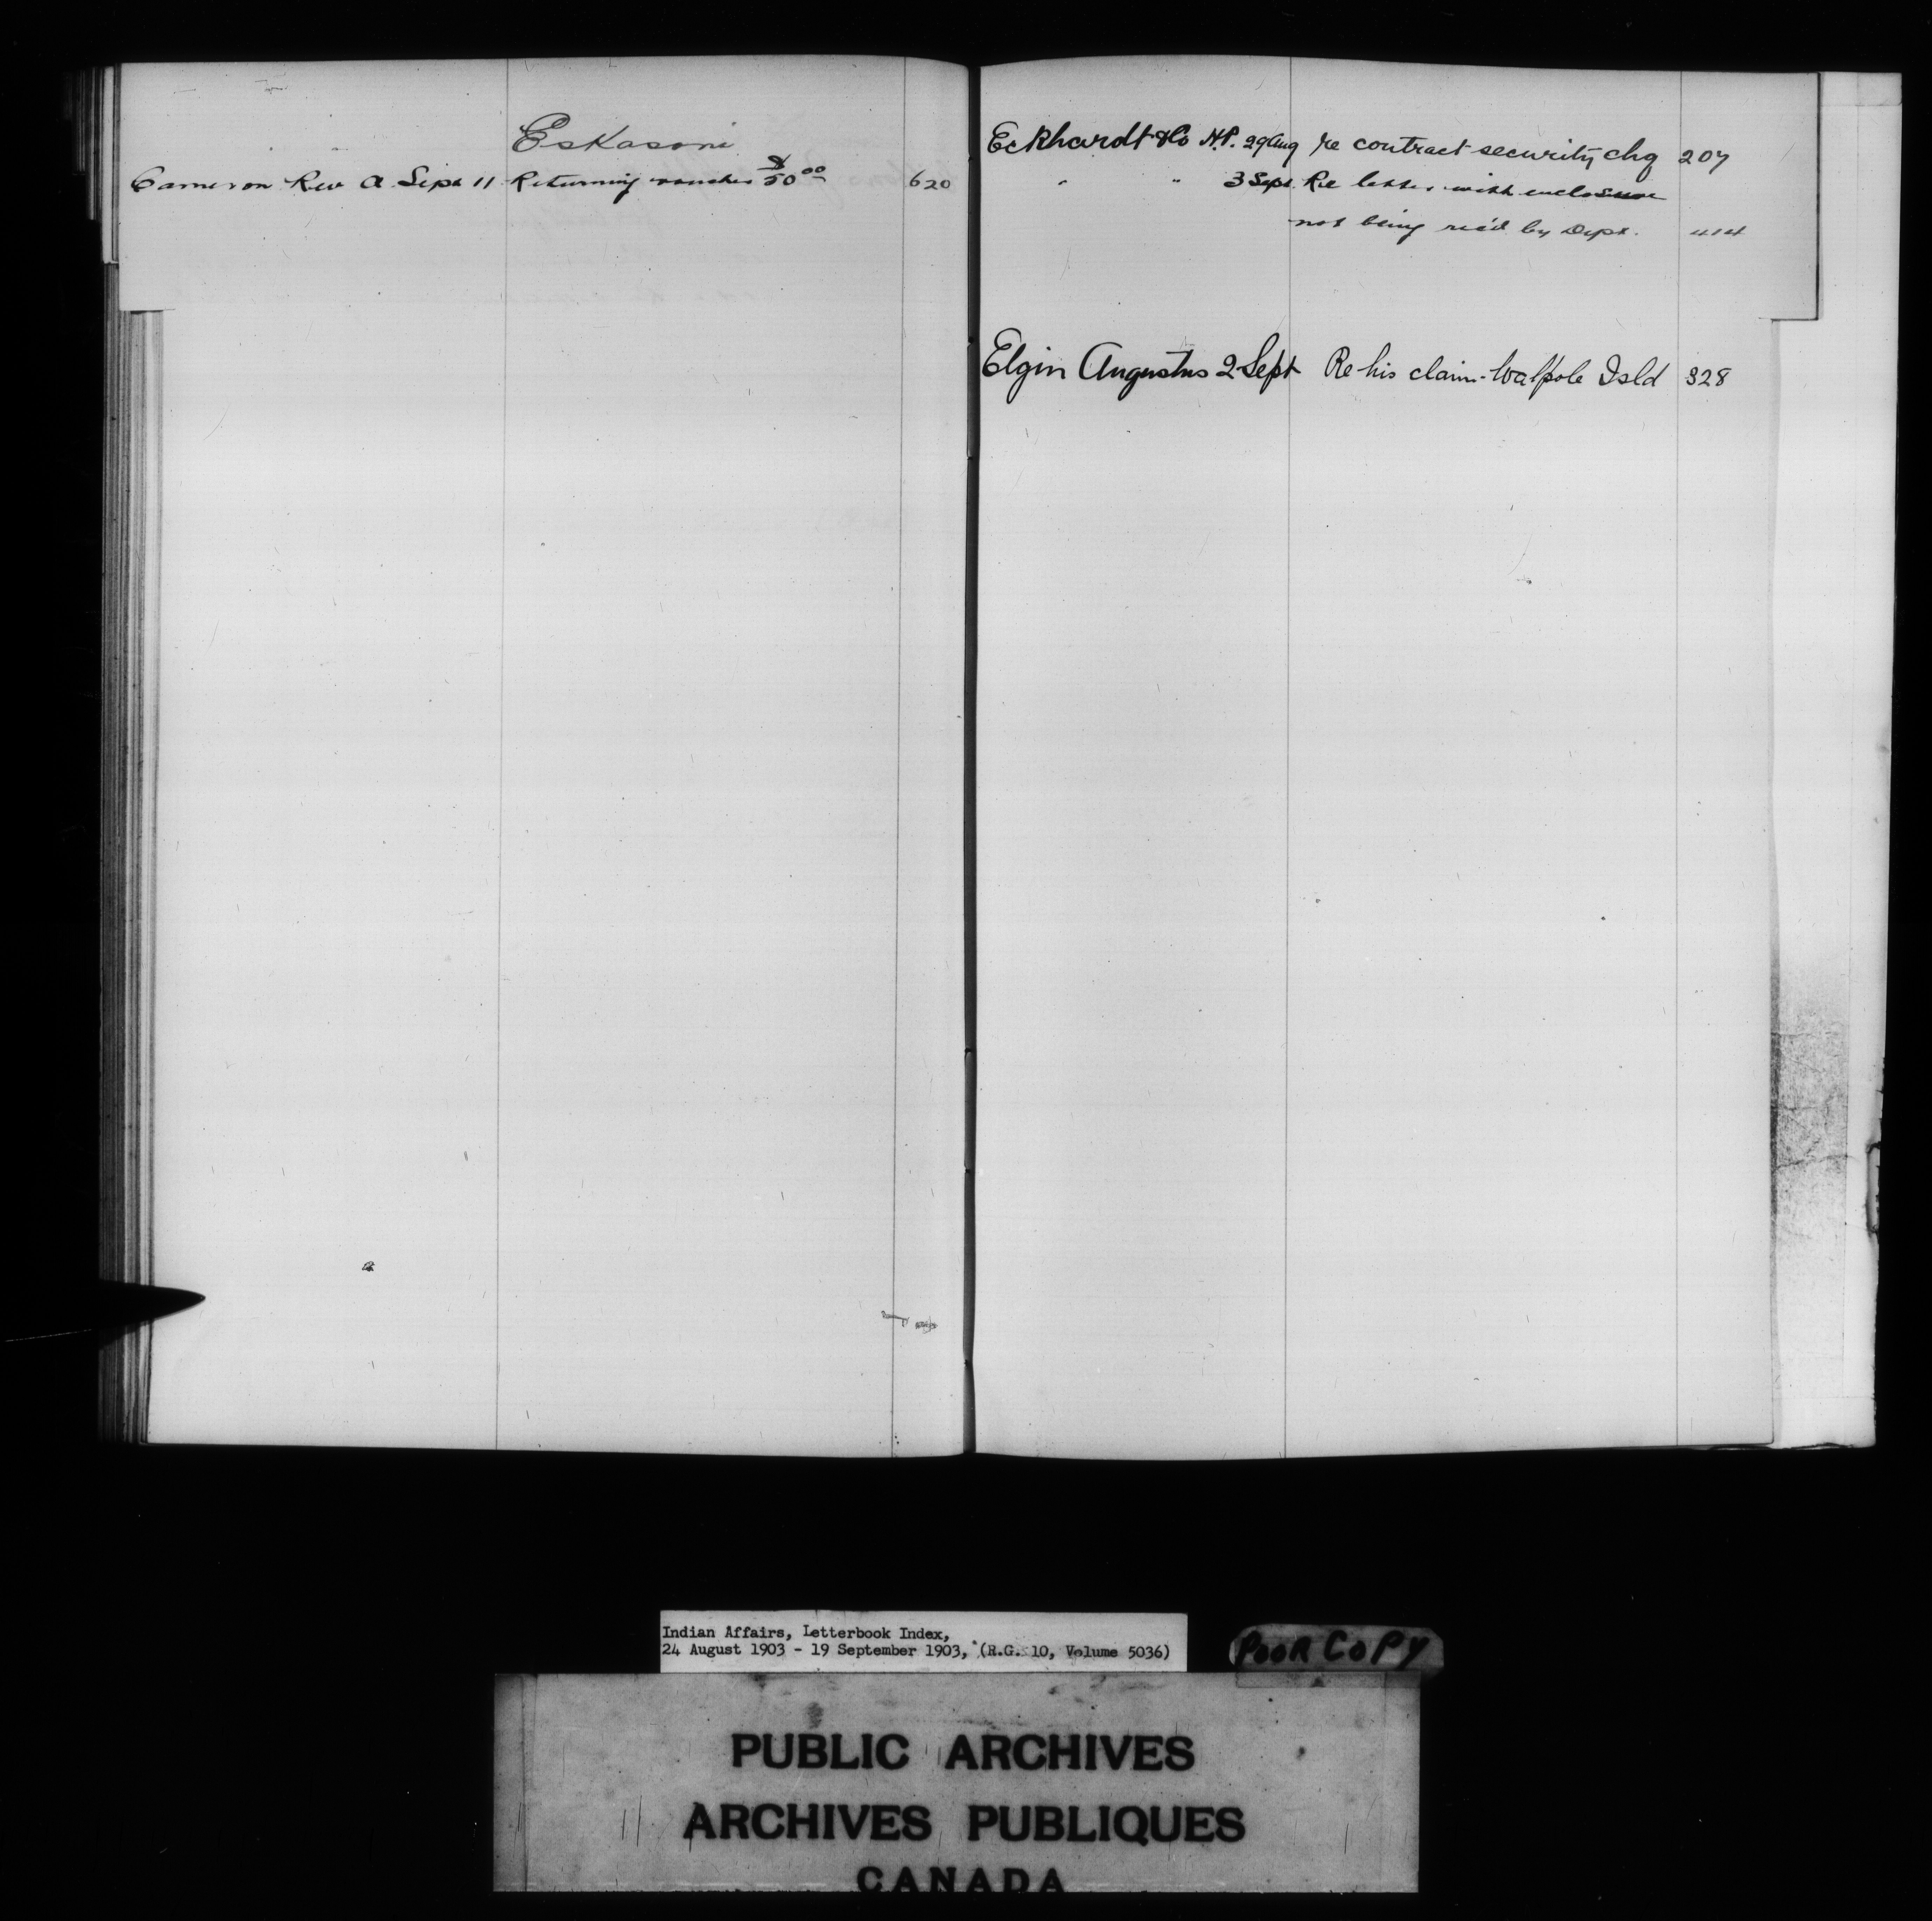 Eskasoni
Cameron Rev A. Sept 11 Returning voucher $50 00 620
Eckhardt & Co H.P. 29 Aug re contract security chq 207
" " 3 Sept. Re letter with enclosure
not being rec'd by Dept. 414
Elgin Augustus 2 Sept Re his claim - Walpole Isld 328
Indian Affairs, Letterbook Index,
24 August 1903 - 19 September 1903, (R.G. 10, Volume 5036)
POOR COPY
PUBLIC ARCHIVES
ARCHIVES PUBLIQUES
CANADA